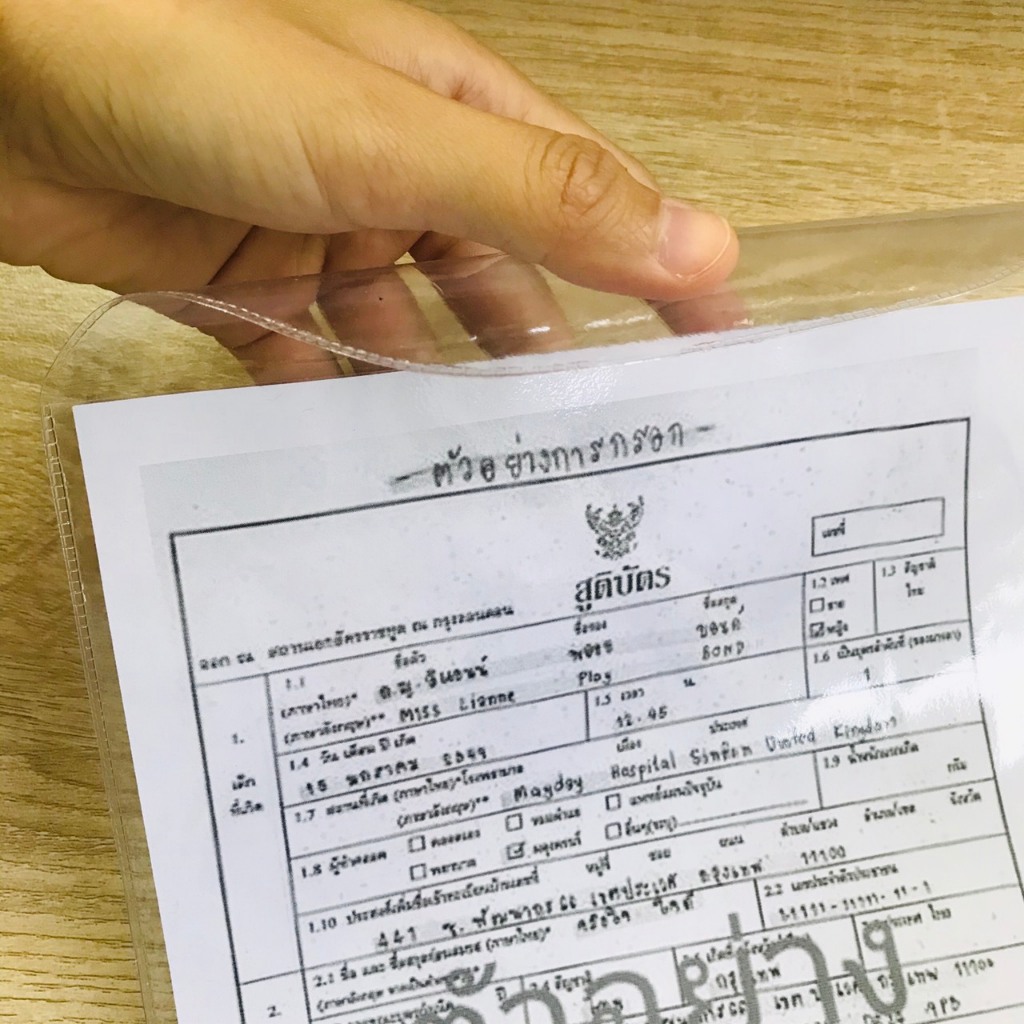 - ตัวอย่างการกรอก -
เลขที่
สูติบัตร
ออก ณ สถานเอกอัครราชทูต ณ กรุงลอนดอน
1.1 ชื่อตัว ชื่อรอง ชื่อสกุล
1.2 เพศ
ชาย
หญิง
1.3 สัญชาติ
ไทย
(ภาษาไทย)* ด.ญ. ลีแอนน์ พลอย บอนด์
(ภาษาอังกฤษ)** Miss Lianne Ploy BOND
1.
เด็ก
ที่เกิด
1.4 วัน เดือน ปี เกิด
15 มกราคม
1.5 เวลา น.
12.45
1.6 เป็นบุตรลำดับที่ (ของมารดา)
1
1.7 สถานที่เกิด (ภาษาไทย)*โรงพยาบาล เมือง ประเทศ
(ภาษาอังกฤษ)** Mayday Hospital United Kingdom
1.8 ผู้ทำคลอด
แพทย์แผนปัจจุบัน
พยาบาล
ผดุงครรภ์
อื่นๆ(ระบุ)
1.9 น้ำหนักแรกเกิด
กรัม
1.10 ประสงค์เพิ่มชื่อเข้าทะเบียนบ้านเลขที่ หมู่ที่ ซอย ถนน ตำบล/แขวง อำเภอ/เขต จังหวัด
441 ซ. พัฒนาการ เขตประเวศ กรุงเทพ 11100
2.
2.1 ชื่อ และ ชื่อสกุลก่อนสมรส (ภาษาไทย)*
2.2 เลขประจำตัวประชาชน
กรุงเทพ
ตัวอย่าง